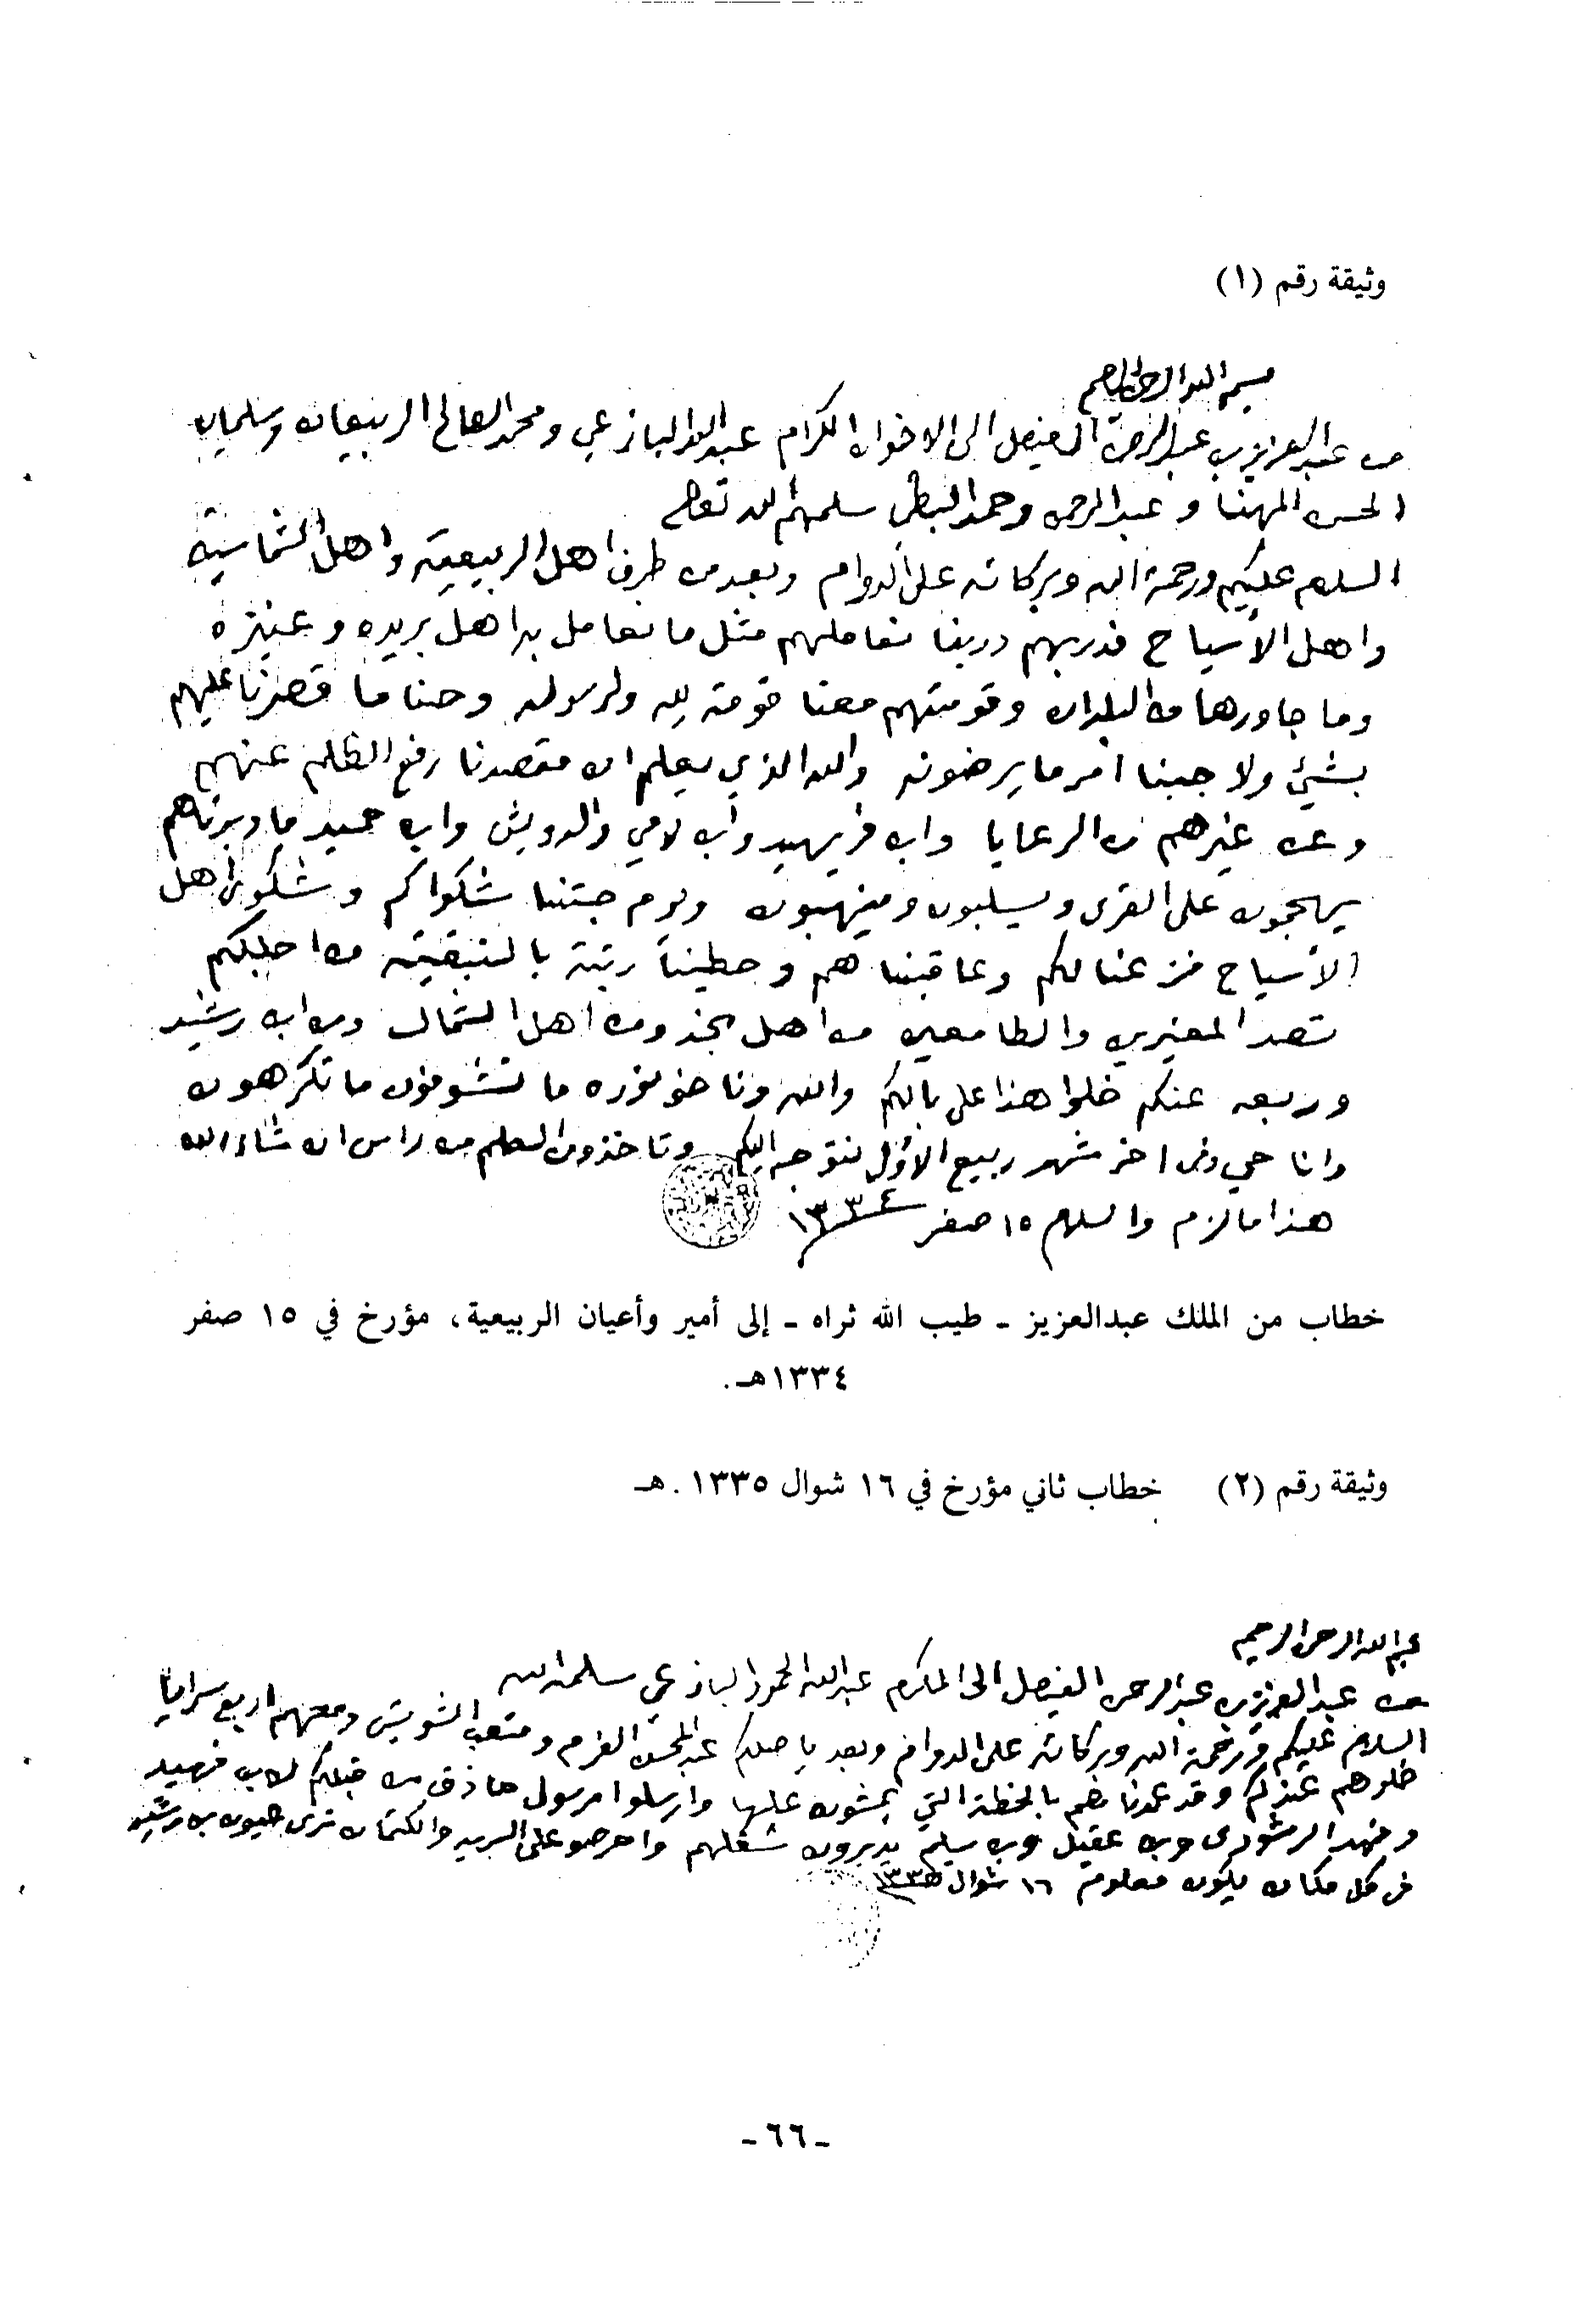 وثيقة رقم (١)
بسم الله الرحمن الرحيم
من عبدالعزيز بن عبدالرحمن الفيصل الى الاخوان الكرام عبدالله البازعي ومحمد الصالح الربيعان وسليمان
الحسن المهنا و عبدالرحمن وحمد البطي سلمهم الله تعالى
السلام عليكم ورحمة الله وبركاته على الدوام وبعد من طرف اهل الربيعية واهل الشماسية
واهل الأسياح دربهم دربنا نعاملهم مثل ما نعامل به اهل بريده وعنيزه
وما جاورها من البلدان وقومتهم معنا قومة لله ولرسوله وحنا ما قصرنا عليهم
بشيئ ولا جبنا امر ما يرضونه والله الذي يعلم ان مقصدنا رفع الظلم عنهم
وعن غيرهم من الرعايا وابن فريهيد وابن لامي والدويش وابن حميد ما دبرناهم
يهجمون على القرى ويسلبون وينهبون ويوم جتنا شكواكم وشكوى اهل
الأسياح فزعنا لكم وعاقبناهم وحطينا رتبة بالنبقية من اجلكم
تصد المغيرين والطامعين من اهل نجد ومن اهل الشمال ومن ابن رشيد
وربعه عنكم خلوا هذا على بالكم والله ونا خو نوره ما تشوفون ما تكرهون
وانا حي وفى اخر شهر ربيع الاول نتوجه اليكم وتاخذون العلم من راس ان شاء الله
هذا ما لزم والسلام ١٥ صفر ١٣٣٤
خطاب من الملك عبدالعزيز ـ طيب الله ثراه ـ إلى أمير وأعيان الربيعية، مؤرخ في ١٥ صفر
١٣٣٤هـ.
وثيقة رقم (٢) خطاب ثاني مؤرخ في ١٦ شوال ١٣٣٥.هـ
بسم الله الرحمن الرحيم
من عبدالعزيز بن عبدالرحمن الفيصل الى المكرم عبدالله الحمود البازعي سلمه الله
السلام عليكم ورحمة الله وبركاته على الدوام وبعد ياصلكم عبدالمحسن الفرم ومتعب الشويش ومعهم اربع سرايا
خلوهم عندكم وقد عمدناهم بالخطة التي يمشون عليها وارسلوا مرسول حاذق من قبلكم لابن فهيد
وفهد الرشودى وبن عقيل وبن سليم يدبرون شغلهم واحرصو على السريه والكتمان ترى عيون بن رشيد
فى كل مكان يكون معلوم ١٦ شوال ١٣٣٥
ـ ٦٦ ـ